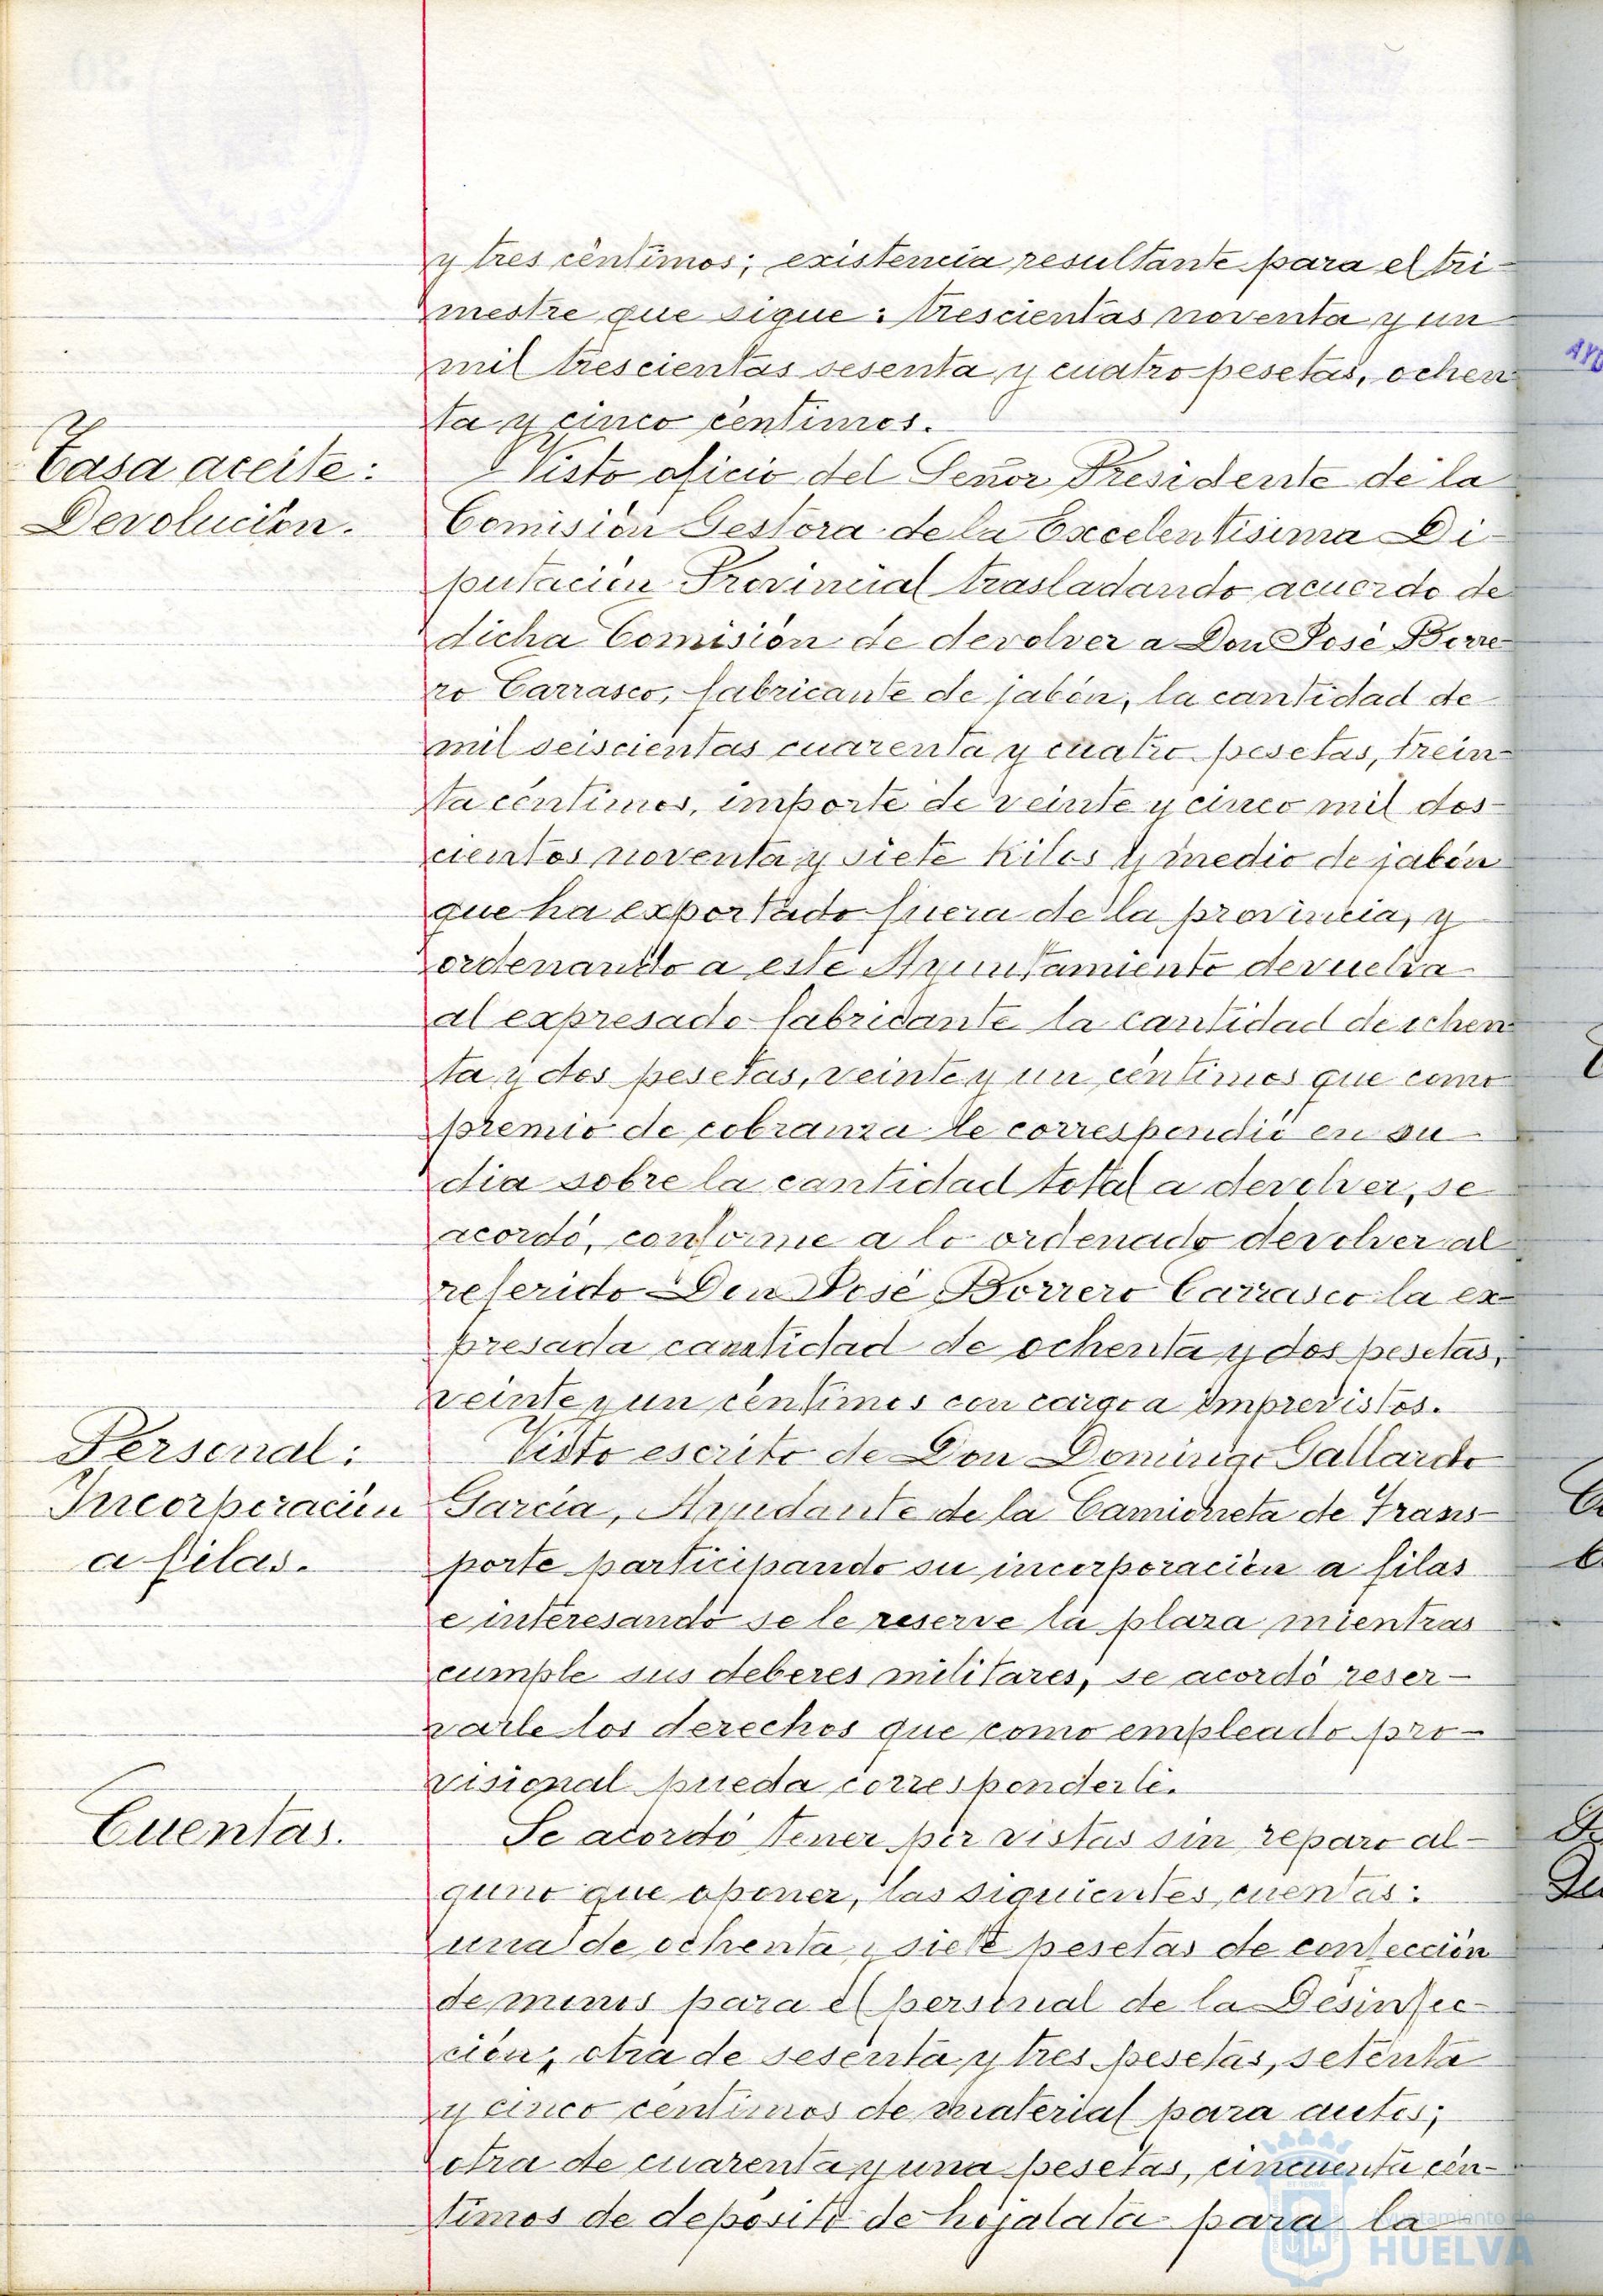 y tres céntimos; existencia resultante para el tri-
mestre que sigue: trescientas noventa y un
mil trescientas sesenta y cuatro pesetas, ochen
ta y cinco céntimos.
Tasa aceite:
Devolución.
Visto oficio del Señor Presidente de la
Comisión Gestora de la Excelentísima Di-
putación Provincial trasladando acuerdo de
dicha Comisión de devolver a Don José Borre-
ro Carrasco, fabricante de jabón, la cantidad de
mil seiscientas cuarenta y cuatro pesetas, trein-
ta céntimos, importe de veinte y cinco mil dos-
cientos noventa y siete kilos y medio de jabón
que ha exportado fuera de la provincia, y
ordenando a este Ayuntamiento devuelva
al expresado fabricante la cantidad de ochen
ta y dos pesetas, veinte y un céntimos que como
premio de cobranza le correspondió en su
dia sobre la cantidad total a devolver, se
acordó, conforme a lo ordenado devolver al
referido Don José Borrero Carrasco la ex-
presada cantidad de ochenta y dos pesetas,
veinte y un céntimos con cargo a Imprevistos.
Personal:
Incorporación
a filas.
Visto escrito de Don Domingo Gallardo
García, Ayudante de la Camioneta de Trans-
porte participando su incorporación a filas
e interesando se le reserve la plaza mientras
cumple sus deberes militares, se acordó reser-
varle los derechos que como empleado pro-
visional pueda corresponderle.
Cuentas.
Se acordó tener por vistas sin reparo al-
guno que oponer, las siguientes cuentas:
una de ochenta y siete pesetas de confección
de monos para el personal de la Desinfec-
ción; otra de sesenta y tres pesetas, setenta
y cinco céntimos de material para autos;
otra de cuarenta y una pesetas, cincuenta cén-
timos de depósito de hojalata para la
Ayuntamiento de
HUELVA